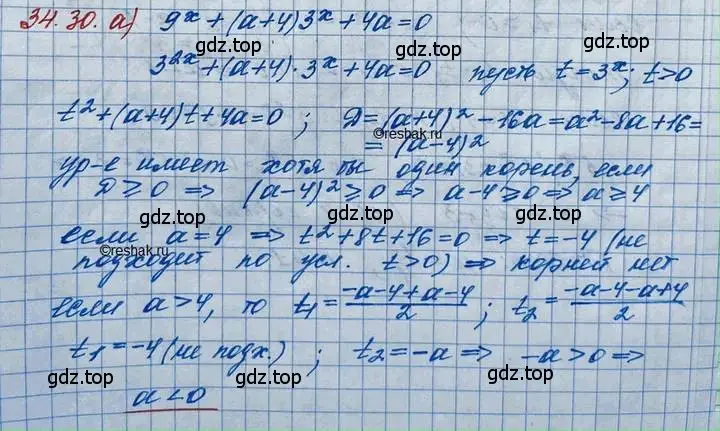 34.30. а) 9^x + (a+4)3^x + 4a = 0
3^{2x} + (a+4)·3^x + 4a = 0 пусть t = 3^x; t > 0
t² + (a+4)t + 4a = 0 ; Д = (a+4)² - 16a = a² - 8a + 16 =
©reshak.ru
= (a-4)²
ур-е имеет хотя бы один корень, если
D ≥ 0 ⇒ (a-4)² ≥ 0 ⇒ a-4 ≥ 0 ⇒ a ≥ 4
gdz.top gdz.top gdz.top
если a = 4 ⇒ t² + 8t + 16 = 0 ⇒ t = -4 (не
©reshak.ru
подходит по усл. t > 0) ⇒ корней нет
gdz.top gdz.top gdz.top
если a > 4, то t₁ = (-a-4+a-4)/2 ; t₂ = (-a-4-a+4)/2
t₁ = -4 (не подх.) ; t₂ = -a ⇒ -a > 0 ⇒
gdz.top gdz.top gdz.top
a < 0